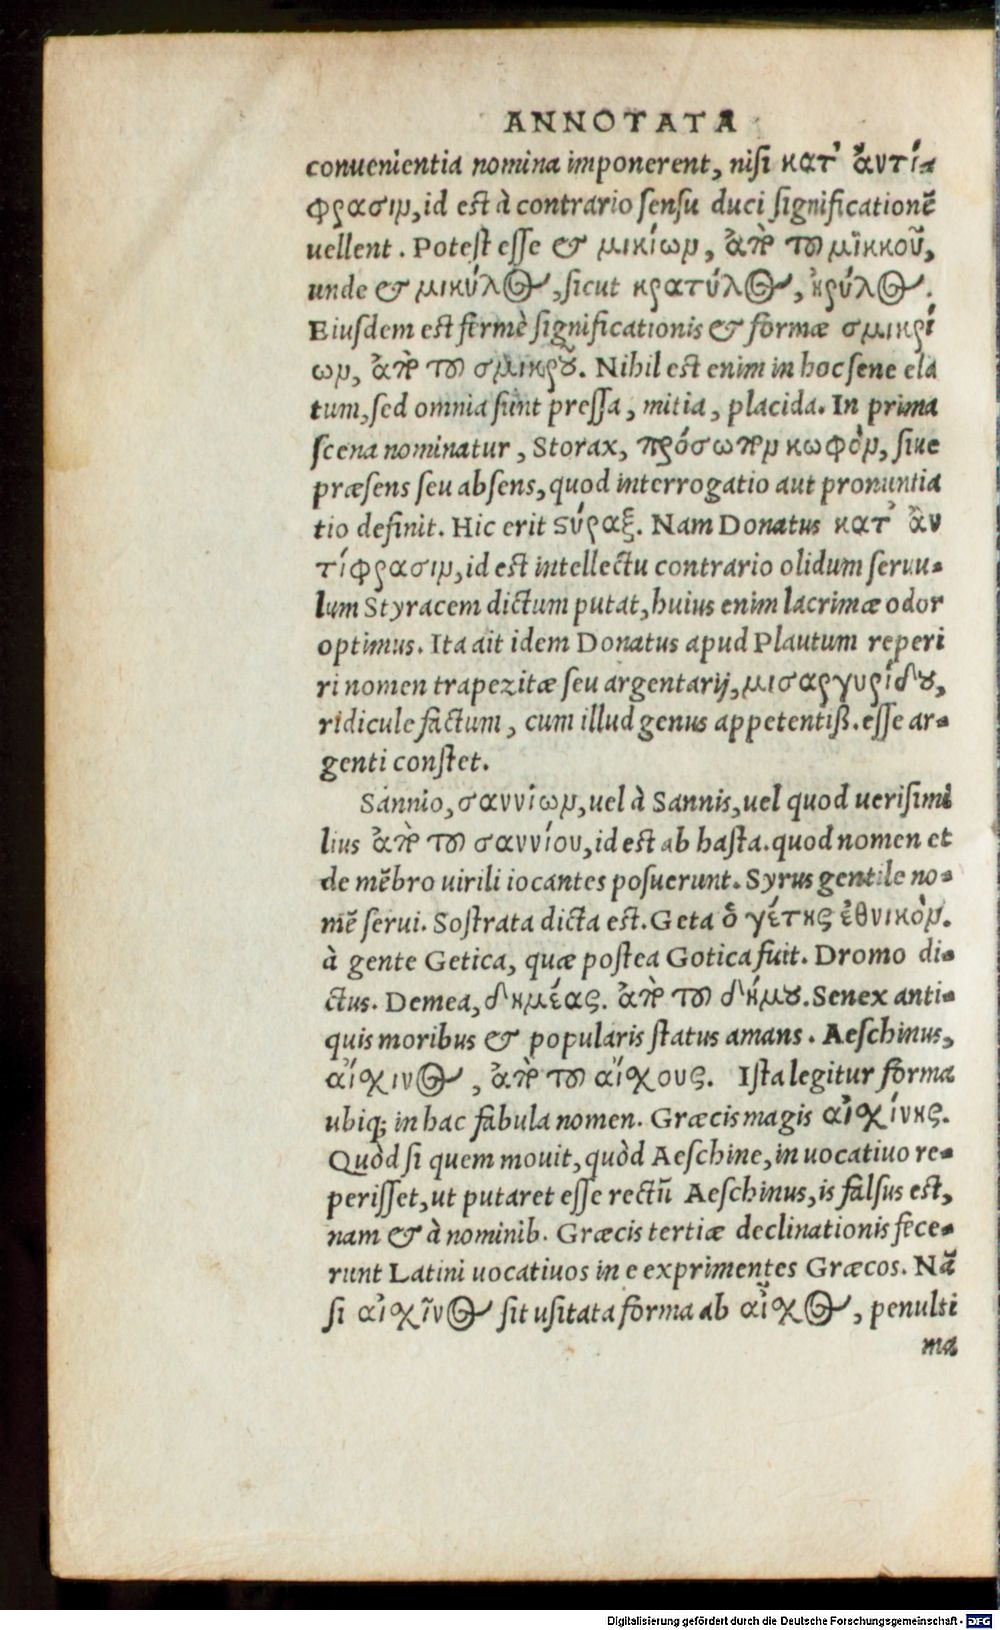 ANNOTATA
conuenientia nomina imponerent, nisi κατ' ἀντί-
φρασιν, id est à contrario sensu duci significationẽ
uellent. Potest esse & μικίων, ἀπὸ τοῦ μίκκου,
unde & μικύλος, sicut κρατύλος, κρύλος.
Eiusdem est fermè significationis & formæ σμικρί
ων, ἀπὸ τοῦ σμικροῦ. Nihil est enim in hoc sene ela
tum, sed omnia sunt pressa, mitia, placida. In prima
scena nominatur, Storax, πρόσωπον κωφὸν, siue
præsens seu absens, quod interrogatio aut pronuntia
tio definit. Hic erit στύραξ. Nam Donatus κατ' ἀν
τίφρασιν, id est intellectu contrario olidum seruu-
lum Styracem dictum putat, huius enim lacrimæ odor
optimus. Ita ait idem Donatus apud Plautum reperi
ri nomen trapezitæ seu argentarij, μισαργυρίδου,
ridicule factum, cum illud genus appetentiß. esse ar-
genti constet.
Sannio, σαννίων, uel à Sannis, uel quod uerisimi
lius ἀπὸ τοῦ σαννίου, id est ab hasta. quod nomen et
de mẽbro uirili iocantes posuerunt. Syrus gentile no-
mẽ serui. Sostrata dicta est. Geta ὁ γέτης ἐθνικὸν.
à gente Getica, quæ postea Gotica fuit. Dromo di-
ctus. Demea, δημέας. ἀπὸ τοῦ δήμου. Senex anti-
quis moribus & popularis status amans. Aeschinus,
αἴσχινος, ἀπὸ τοῦ αἴσχους. Ista legitur forma
ubiq; in hac fabula nomen. Græcis magis αἰσχίνης.
Quòd si quem mouit, quòd Aeschine, in uocatiuo re-
perisset, ut putaret esse rectũ Aeschinus, is falsus est,
nam & à nominib. Græcis tertiæ declinationis fece-
runt Latini uocatiuos in e exprimentes Græcos. Nã
si αἰσχῖνος sit usitata forma ab αἶσχος, penulti
ma
Digitalisierung gefördert durch die Deutsche Forschungsgemeinschaft - DFG